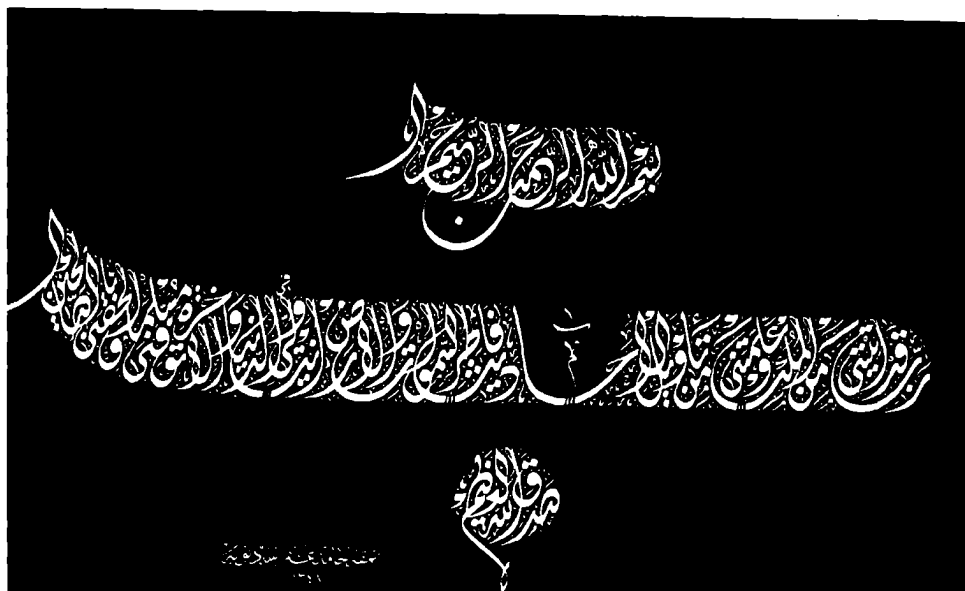 بسم الله الرحمن الرحيم
رب قد آتيتني من الملك وعلمتني من تأويل الأحاديث فاطر السموات والأرض أنت وليي في الدنيا والآخرة توفني مسلما وألحقني بالصالحين
صدق الله العظيم
١٣٦٨